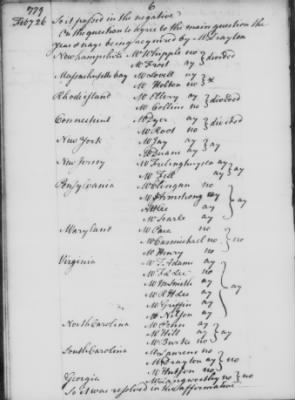 779
6
Feby 26
So it passed in the negative
On the question to agree to the main question the
yeas & nays being required by Mr Drayton
New hampshire Mr Whipple no
Mr Frost ay } divided
Massachusetts bay Mr Lovell ay
Mr Holten no } *
Rhode island Mr Ellery ay
Mr Collins no } divided
Connecticut Mr Dyer ay
Mr Root no } divided
New York Mr Jay ay
Mr Duane ay } ay
New Jersey Mr Frelinghuysen ay
Mr Fell ay } ay
Pensylvania Mr Clingan no
Mr Armstrong ay
Mr Atlee ay
Mr Searle ay } ay
Maryland Mr Paca no
Mr Carmichael no
Mr Henry no } no
Virginia Mr T. Adams ay
Mr F L Lee no
Mr M Smith ay
Mr R H Lee ay
Mr Griffin ay
Mr Nelson ay } ay
North Carolina Mr Penn ay
Mr Hill ay
Mr Burke no } ay
South Carolina Mr Laurens no
Mr Drayton no
Mr Hutson no } no
Georgia Mr Langworthy no } no
So it was resolved in the affirmative